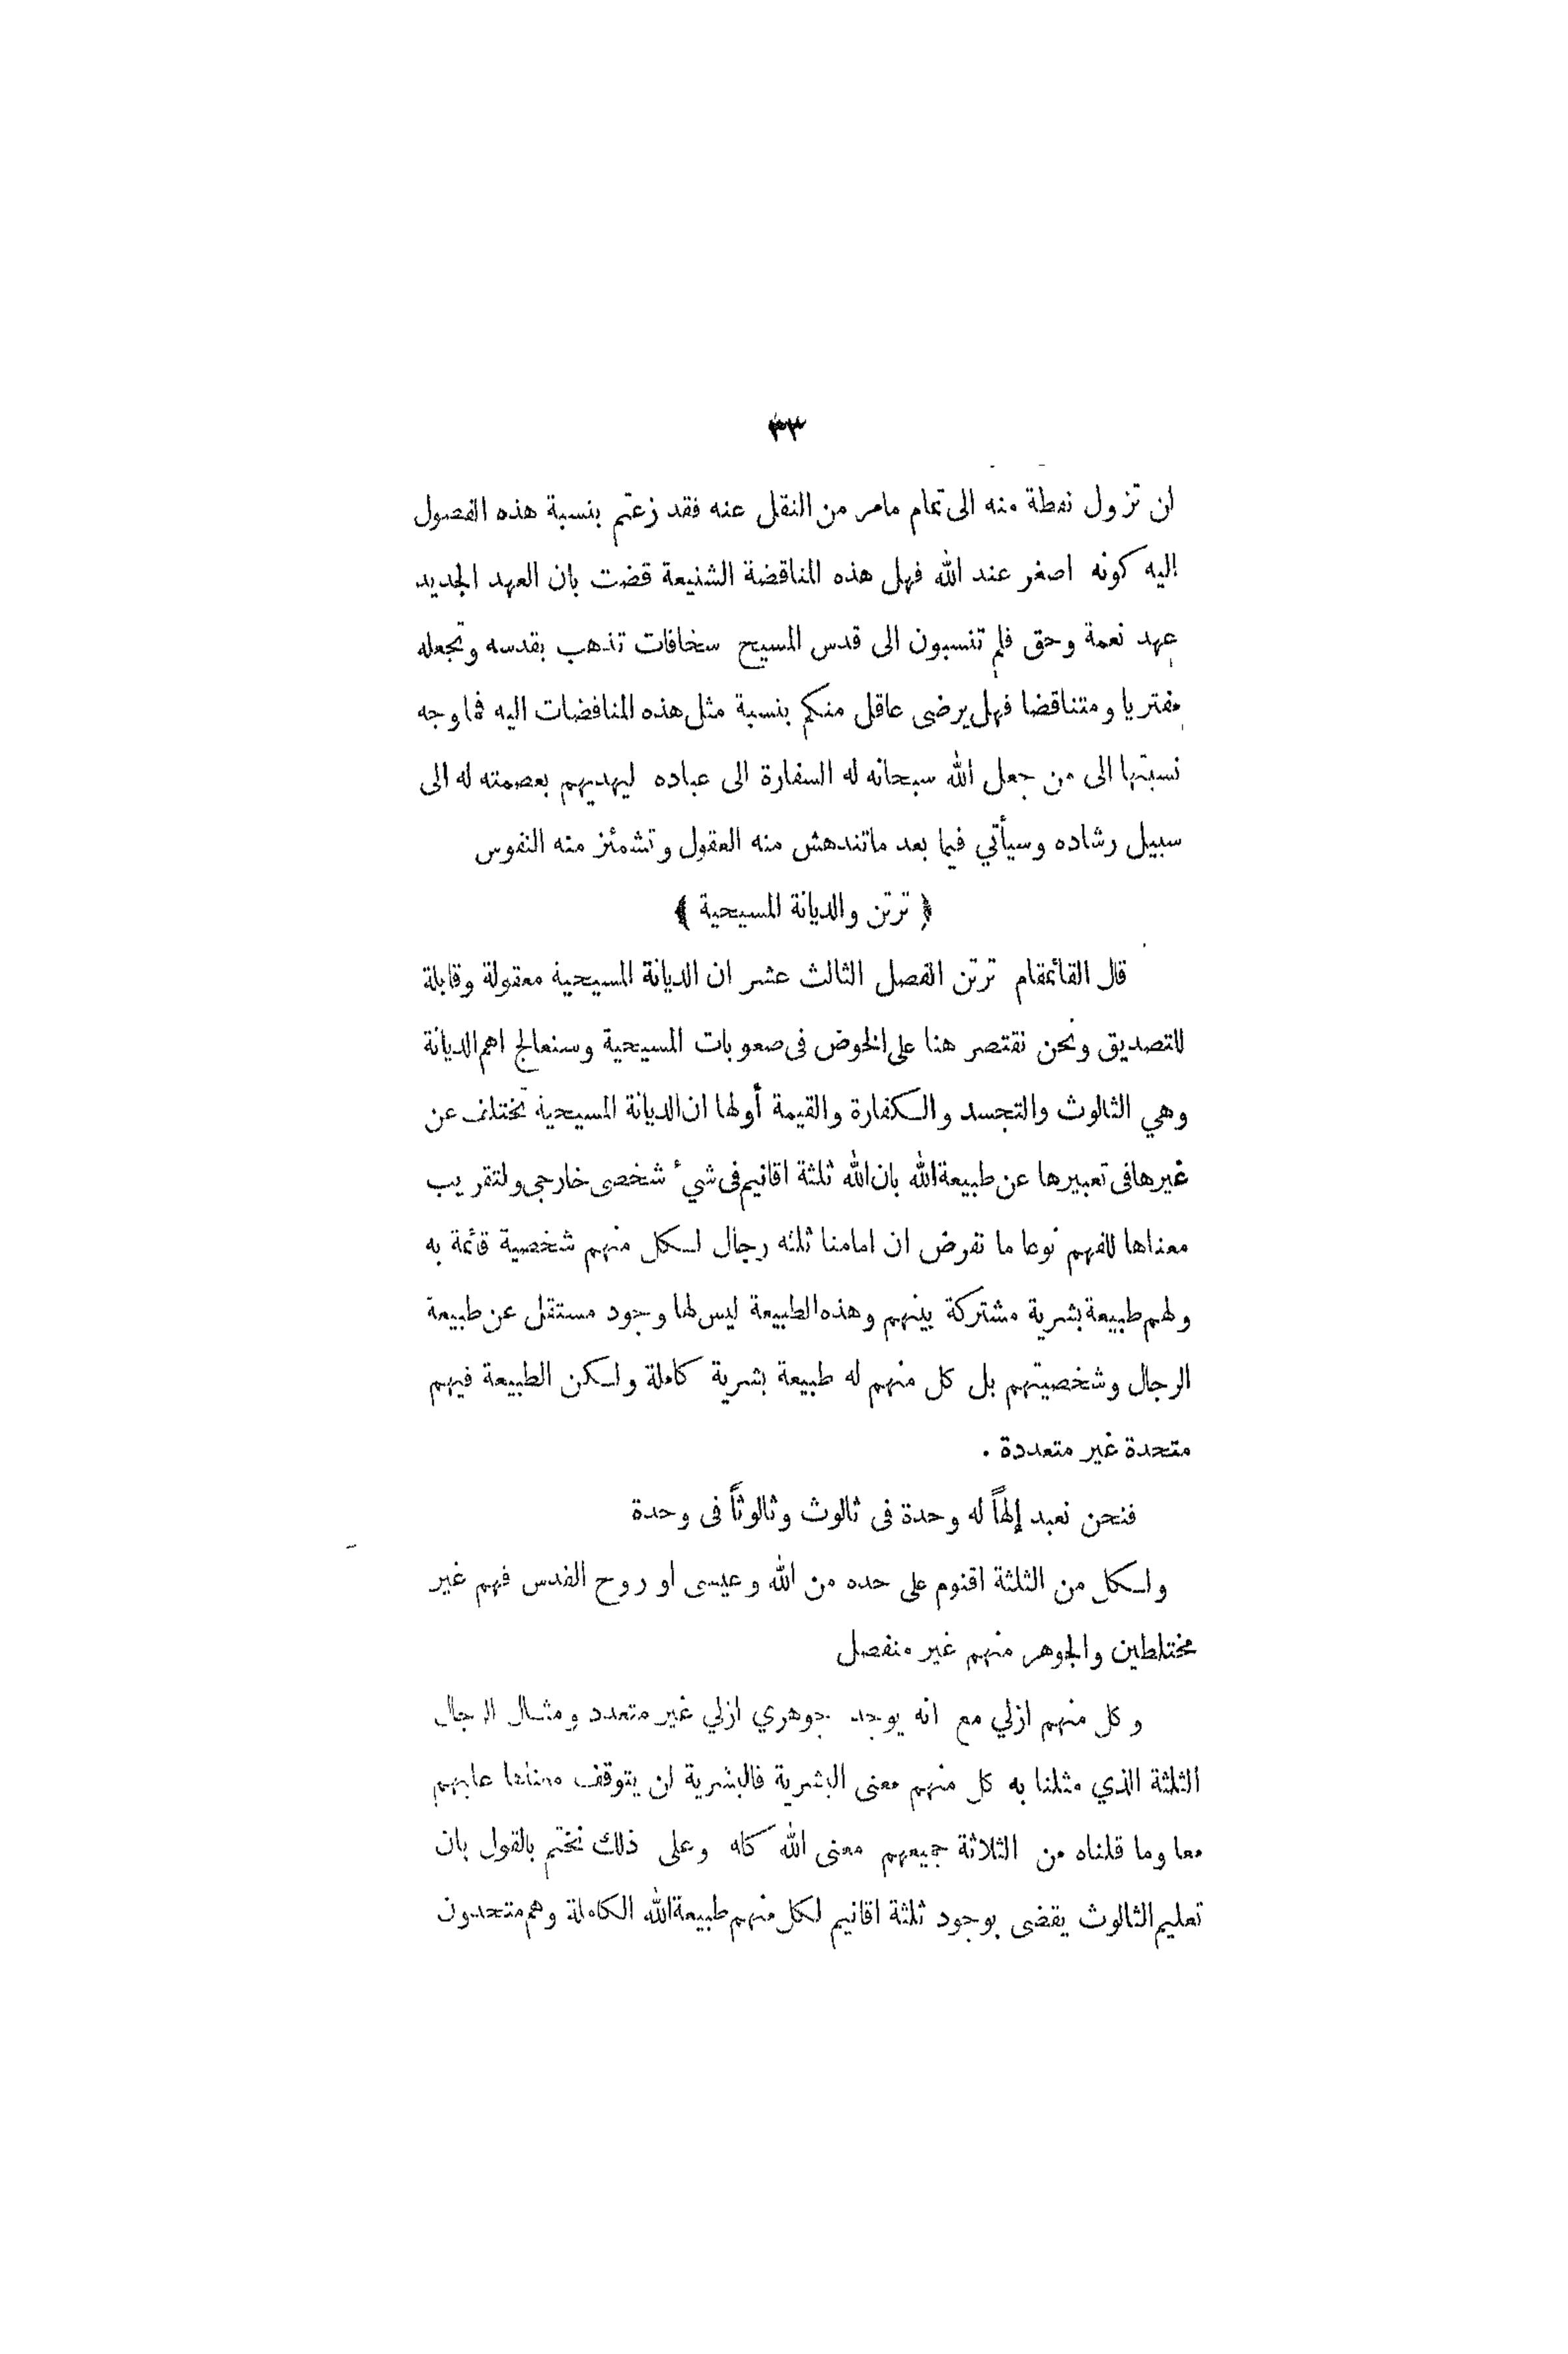 ٣٣
لن تزول نقطة منه الى تمام مامر من النقل عنه فقد زعتم بنسبة هذه الفصول
اليه كونه اصغر عند الله فهل هذه المناقضة الشنيعة قضت بان العهد الجديد
عهد نعمة وحق فلم تنسبون الى قدس المسيح سخافات تذهب بقدسه وتجعله
مفتريا ومتناقضا فهل يرضى عاقل منكم بنسبة مثل هذه المناقضات اليه فما وجه
نسبتها الى من جعل الله سبحانه له السفارة الى عباده ليهديهم بعصمته له الى
سبيل رشاده وسيأتي فيما بعد ماتندهش منه العقول وتشمئز منه النفوس
﴿ ترتن والديانة المسيحية ﴾
قال القائمقام ترتن الفصل الثالث عشر ان الديانة المسيحية معقولة وقابلة
للتصديق ونحن نقتصر هنا على الخوض فى صعوبات المسيحية وسنعالج اهم الديانة
وهي الثالوث والتجسد والكفارة والقيمة أولها ان الديانة المسيحية تختلف عن
غيرها فى تعبيرها عن طبيعة الله بان الله ثلثة اقانيم فى شيء شخصى خارجى ولتقريب
معناها للفهم نوعا ما نفرض ان امامنا ثلثه رجال لكل منهم شخصية قائمة به
ولهم طبيعة بشرية مشتركة بينهم وهذه الطبيعة ليس لها وجود مستقل عن طبيعة
الرجال وشخصيتهم بل كل منهم له طبيعة بشرية كاملة ولكن الطبيعة فيهم
متحدة غير متعددة .
فنحن نعبد إلهاً له وحدة فى ثالوث وثالوثاً فى وحدة
ولكل من الثلثة اقنوم على حده من الله وعيسى او روح القدس فهم غير
مختلطين والجوهر منهم غير منفصل
وكل منهم ازلي مع انه يوجد جوهري ازلي غير متعدد ومثال الرجال
الثلثة الذي مثلنا به كل منهم معنى البشرية فالبشرية لن يتوقف معناها عليهم
معا وما قلناه من الثلاثة جميعهم معنى الله كله وعلى ذلك نختم بالقول بان
تعليم الثالوث يقضى بوجود ثلثة اقانيم لكل منهم طبيعة الله الكاملة وهم متحدون